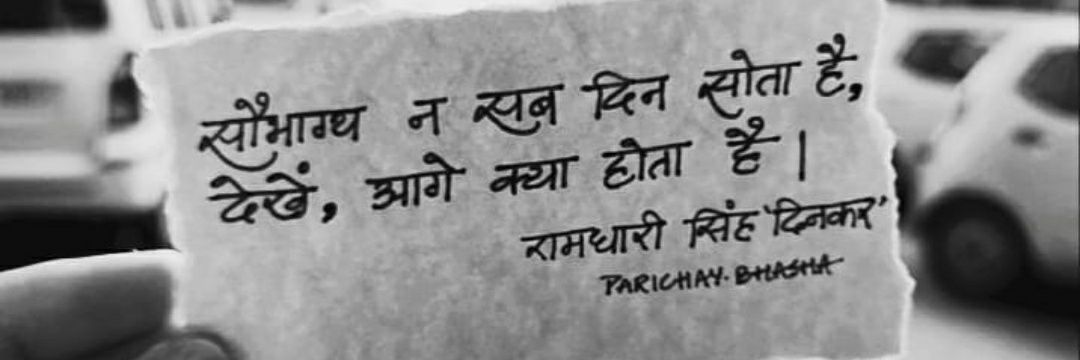 सौभाग्य न सब दिन सोता है,
देखें, आगे क्या होता है।
रामधारी सिंह 'दिनकर'
PARICHAY.BHASHA